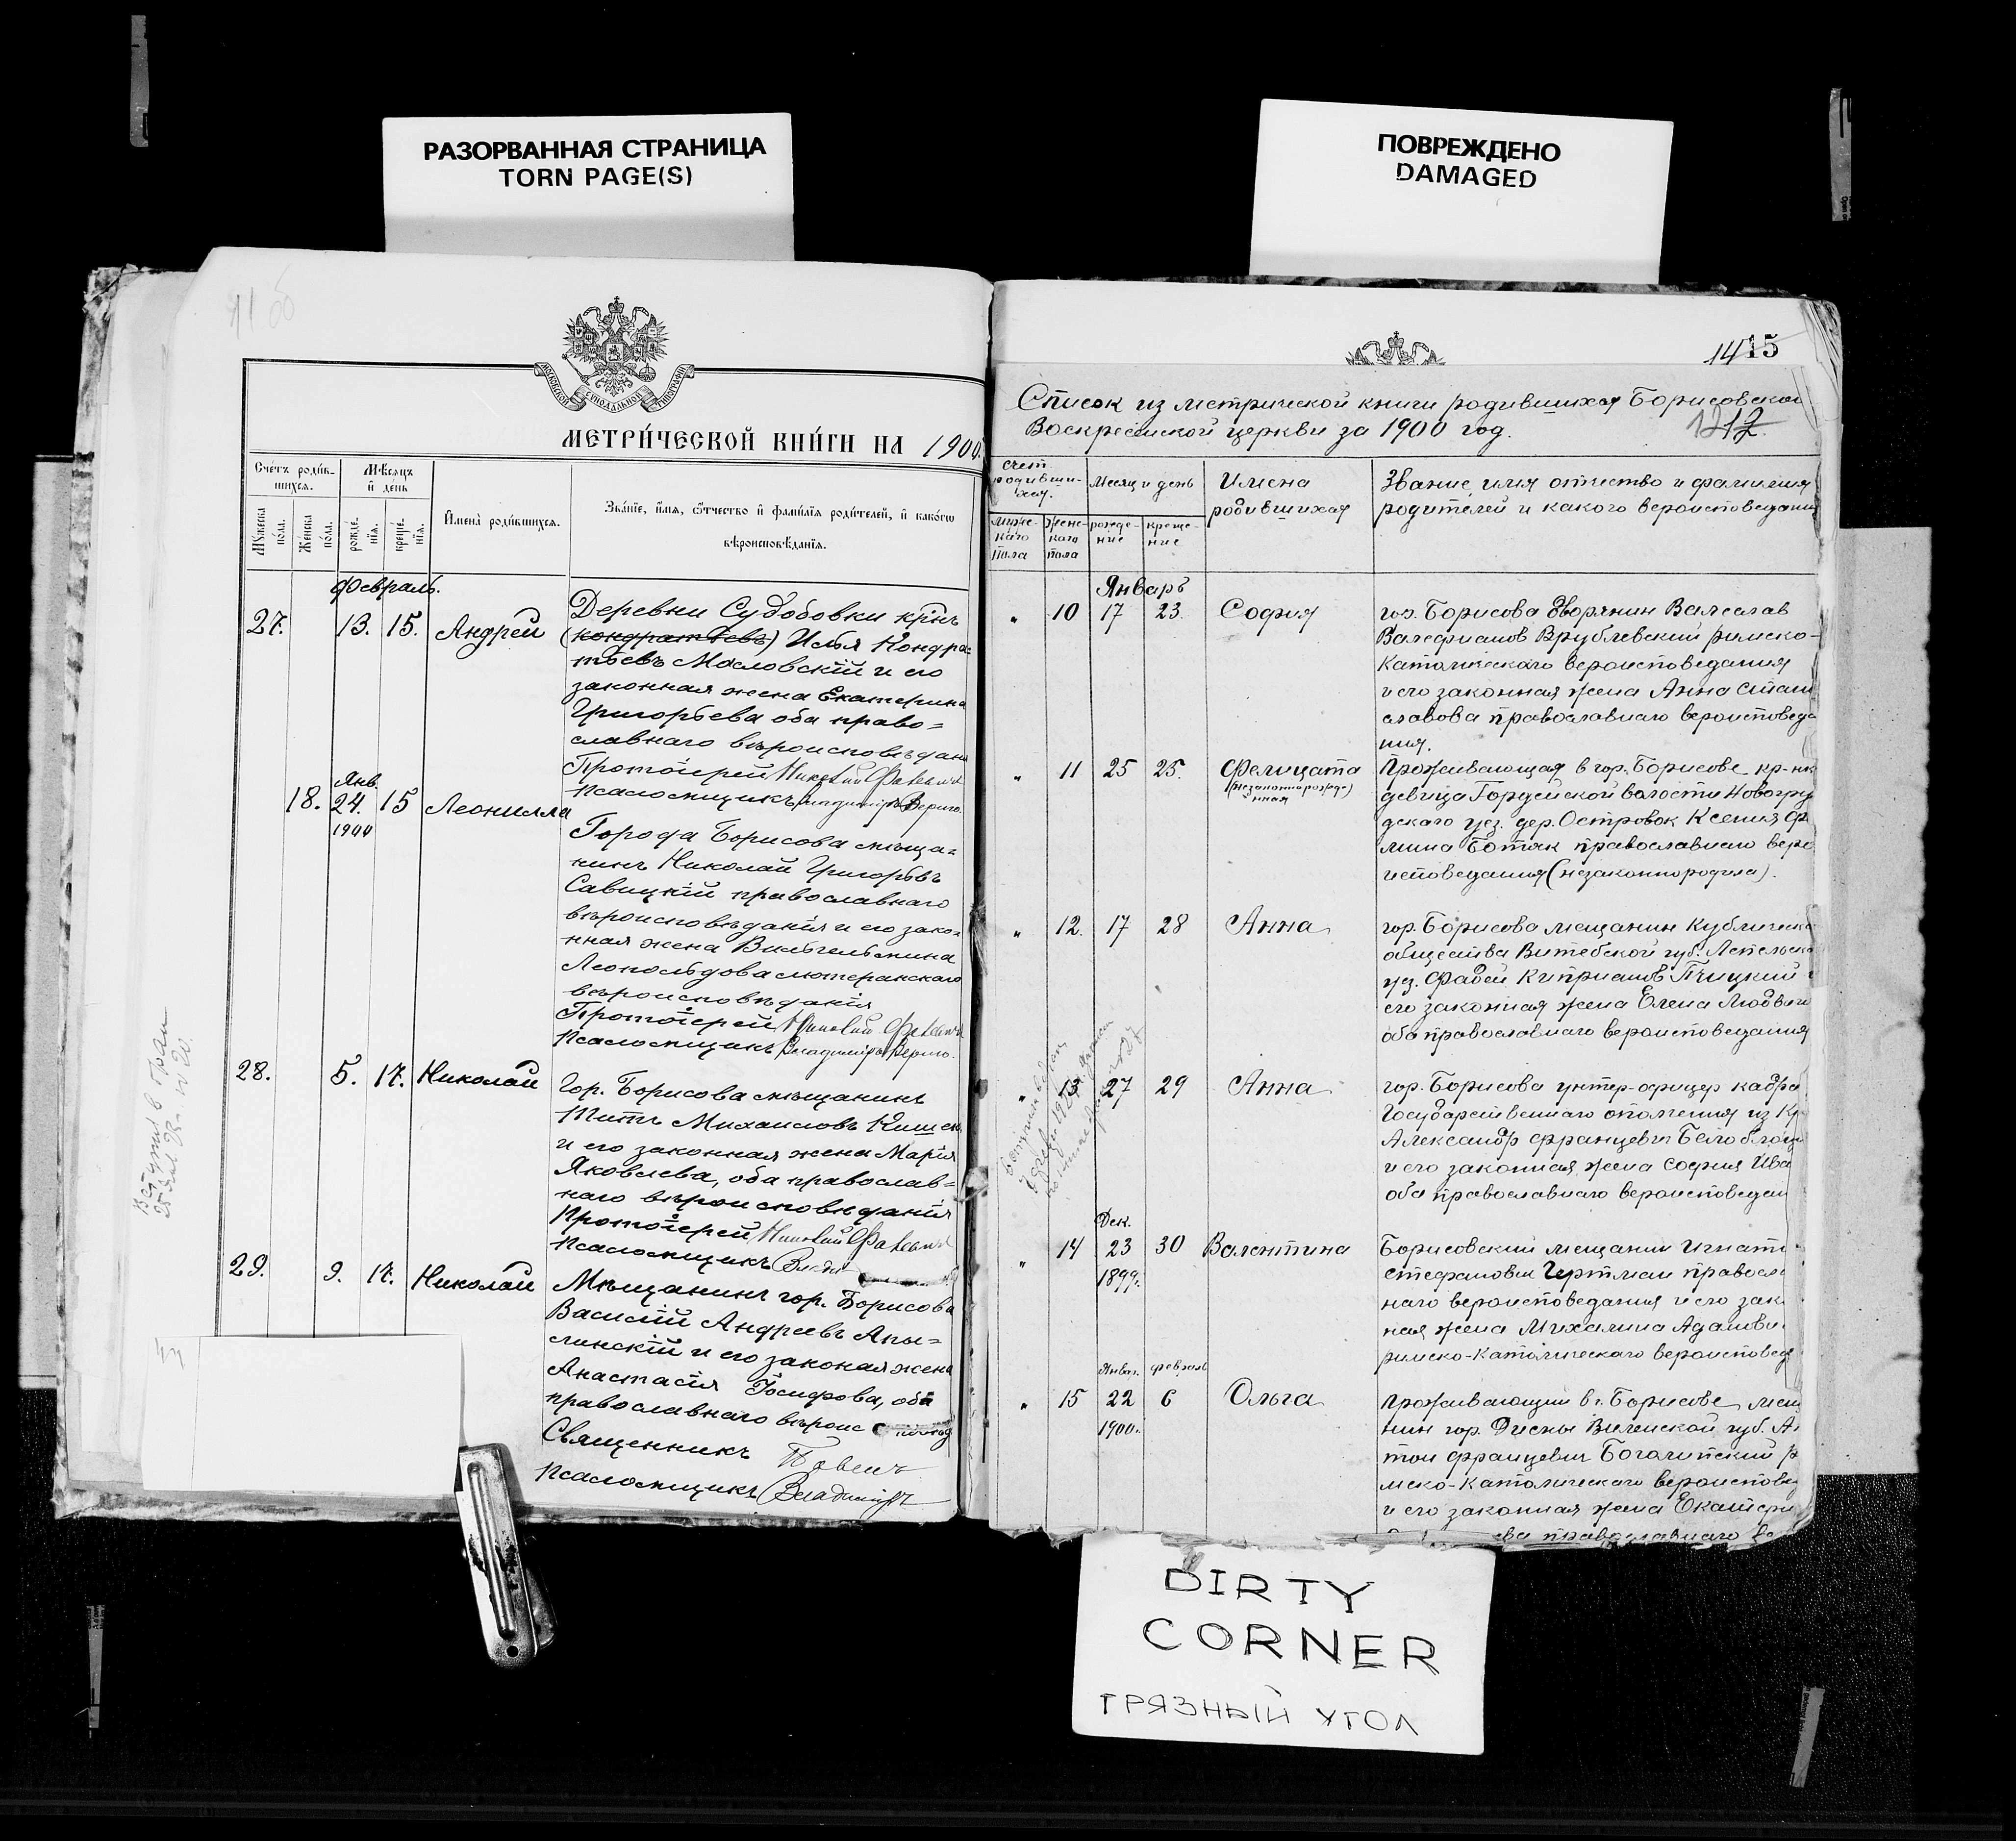 РАЗОРВАННАЯ СТРАНИЦА
TORN PAGE(S)
ПОВРЕЖДЕНО
DAMAGED
МОСКОВСКОЙ СѴНОДАЛЬНОЙ ТИПОГРАФІИ
МЕТРИ́ЧЕСКОЙ КНИ́ГИ НА 1900
Сче́тъ роди́в-
шихся.
Мѣ́сяцъ
и де́нь
Му́жеска
по́ла.
Же́нска
по́ла.
рожде́-
нія.
креще́-
нія.
И҆мена̀ роди́вшихся.
Зва́ніе, и҆́мя, ѻ҆́тчество и҆ фами́лія роди́телей, и҆ како́гѡ
вѣроисповѣ́данія.
Февраль.
27. 13. 15. Андрей
Деревни Судобовки крнъ
(кондратьевъ) Илья Кондра-
тьевъ Масловскій и его
законная жена Екатерина
Григорьева оба право=
славнаго вѣроисповѣдан
Протоіерей
Псаломщикъ Владиміръ
Янв.
18. 24. 15 Леонилла
1900
Города Борисова мѣща=
нинъ Николай Григорьевъ
Савицкій православнаго
вѣроисповѣданія и его зако=
нная жена Вильгельмина
Леопольдова лютеранскаго
вѣроисповѣданія
Протоіерей
Псаломщикъ Владиміръ
28. 5. 17. Николай
Гор. Борисова мѣщанинъ
Титъ Михаиловъ
и его законная жена Марія
Яковлева, оба православ=
наго вѣроисповѣданія
Протоіерей
Псаломщикъ
29. 9. 17. Николай
Мѣщанинъ гор. Борисова
Василій Андреевъ Япы=
линскій и его законая жена
Анастасія Іосифова, оба
православнаго вѣроис
Священникъ
Псаломщикъ Владиміръ
14 15
Список из метрической книги родившихся Борисовской
Воскресенской церкви за 1900 год.
12
счет
родивши-
хся.
месяц и день
Имена
родившихся
Звание, имя отчество и фамилия
родителей и какого вероисповедания
муже-
каго
пола
женс-
каго
пола
рожде-
ние
креще-
ние
Январь
" 10 17 23. София
гор. Борисова Дворянин Валеслав
Валерианов Врублевский римско-
Католического вероисповедания
и его законная жена Анна Стани
славова православнаго вероисповеда
ния.
" 11 25 25. Фелицата
(незаконнорожде)
нная
Проживающая в гор. Борисове кр-нка
девица Гордейской волости Новогру
дскаго уез. дер. Островок Ксения Ф
мина Ботяк православнаго веро
исповедания (незаконнородила).
" 12. 17 28 Анна
гор. Борисова мещанин Кубличска
общества Витебской губ. Лепельска
уез. Фадей Киприанов Пчицкий и
его законная жена Елена Людвиго
оба православнаго вероисповедания
" 13 27 29 Анна
гор. Борисова унтер-офицер кадра
Государственнаго ополчения из Кр
Александр Францевич
и его законная жена София Ива
оба православнаго вероисповедан
Дек.
" 14 23 30 Валентина
1899г.
Борисовский мещанин Игнати
Стефанович Чертман правосла
наго вероисповедания и его зак
ная жена Михалина Адамовн
римско-Католического вероисповед
Январ. февраль
" 15 22 6 Ольга
1900г.
проживающий в г. Борисове, мещ
нин гор. Дисны Виленской губ. Ан
тон Францевич Боголитский р
мско-Католического вероисповед
и его законная жена Екатери
ева православнаго ве
DIRTY
CORNER
ГРЯЗНЫЙ УГОЛ